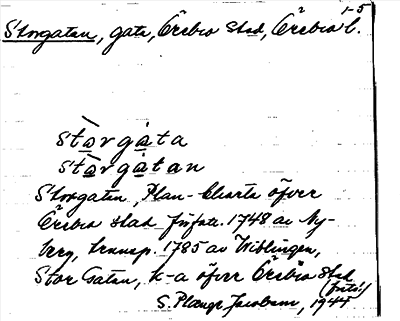 1-5
Storgatan, gata, Örebro stad, Örebro l.
stòrgàta
stòrgàtan
Storgatan, Plan-Charta öfver
Örebro stad författ. 1748 av Ny-
berg, transp. 1785 av Wiblingen,
Stor Gatan, k-a öfver Örebro stad
(forts.)
S. Plænge Jacobson, 1944